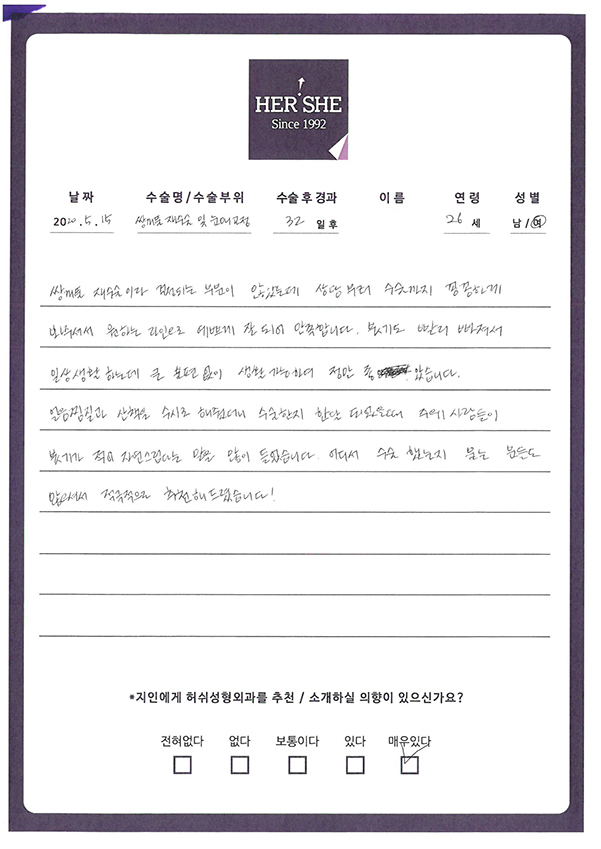 HER SHE
Since 1992
날짜 수술명/수술부위 수술 후 경과 이름 연령 성별
2020.5.15 쌍꺼풀 재수술 및 눈매교정 32 일 후 26 세 남/여
쌍꺼풀 재수술이라 걱정되는 부분이 많았는데 상담부터 수술까지 꼼꼼하게
봐주셔서 원하는 라인으로 예쁘게 잘 되어 만족합니다. 붓기도 빨리 빠져서
일상생활 하는데 큰 불편 없이 생활 가능하여 정말 좋았습니다.
얼음찜질과 산책을 수시로 해줬더니 수술한지 한달 되었을때 주변 사람들이
붓기가 적어 자연스럽다는 말을 많이 들었습니다. 어디서 수술 했는지 묻는 분들도
많으셔서 적극적으로 추천해드렸습니다!
*지인에게 허쉬성형외과를 추천 / 소개하실 의향이 있으신가요?
전혀없다 없다 보통이다 있다 매우있다